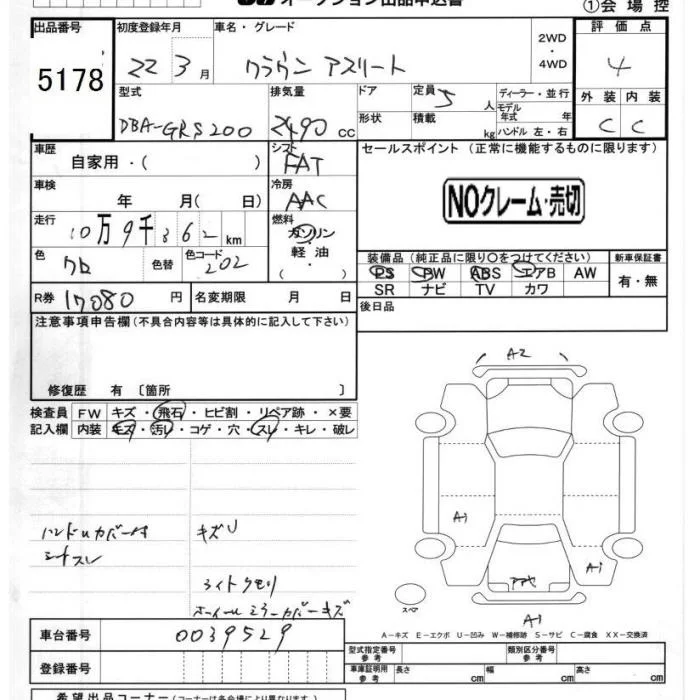 オークション出品申込書
①会場控
出品番号 初度登録年月 車名・グレード 2WD・4WD 評価点
5178 22 3月 クラウン アスリート 4
型式 排気量 ドア 定員 5人 ディーラー・並行 外装 内装
DBA-GRS200 2490 cc 形状 積載 kg モデル年式 年 ハンドル 左・右 C C
車歴 自家用・( ) シフト FAT セールスポイント(正常に機能するものに限ります)
車検 年 月( 日) 冷房 AAC NOクレーム・売切
走行 10万9千362km 燃料 ガソリン・軽油・( )
色 クロ 色替 色コード 202 装備品(純正品に限り○をつけてください) 新車保証書
PS PW ABS エアB AW 有・無
SR ナビ TV カワ
R券 17080円 名変期限 月 日 後日品
注意事項申告欄(不具合内容等は具体的に記入して下さい)
修復歴 有〔箇所 〕
検査員 FW キズ・飛石・ヒビ割・リペア跡・×要
記入欄 内装 キズ・汚レ・コゲ・穴・スレ・キレ・破レ
A2
ハンドルカバー付 キズU
シートスレ
A1
A1
ライトクモリ
ホイールミラーカバーキズ
スペア
A1
A-キズ E-エクボ U-凹み W-補修跡 S-サビ C-腐食 XX-交換済
車台番号 0039529
型式指定番号 参考 類別区分番号 参考
登録番号 車庫証明用 参考 長さ cm 幅 cm 高さ cm
希望出品コーナー(コーナーは各会場により異なります。)